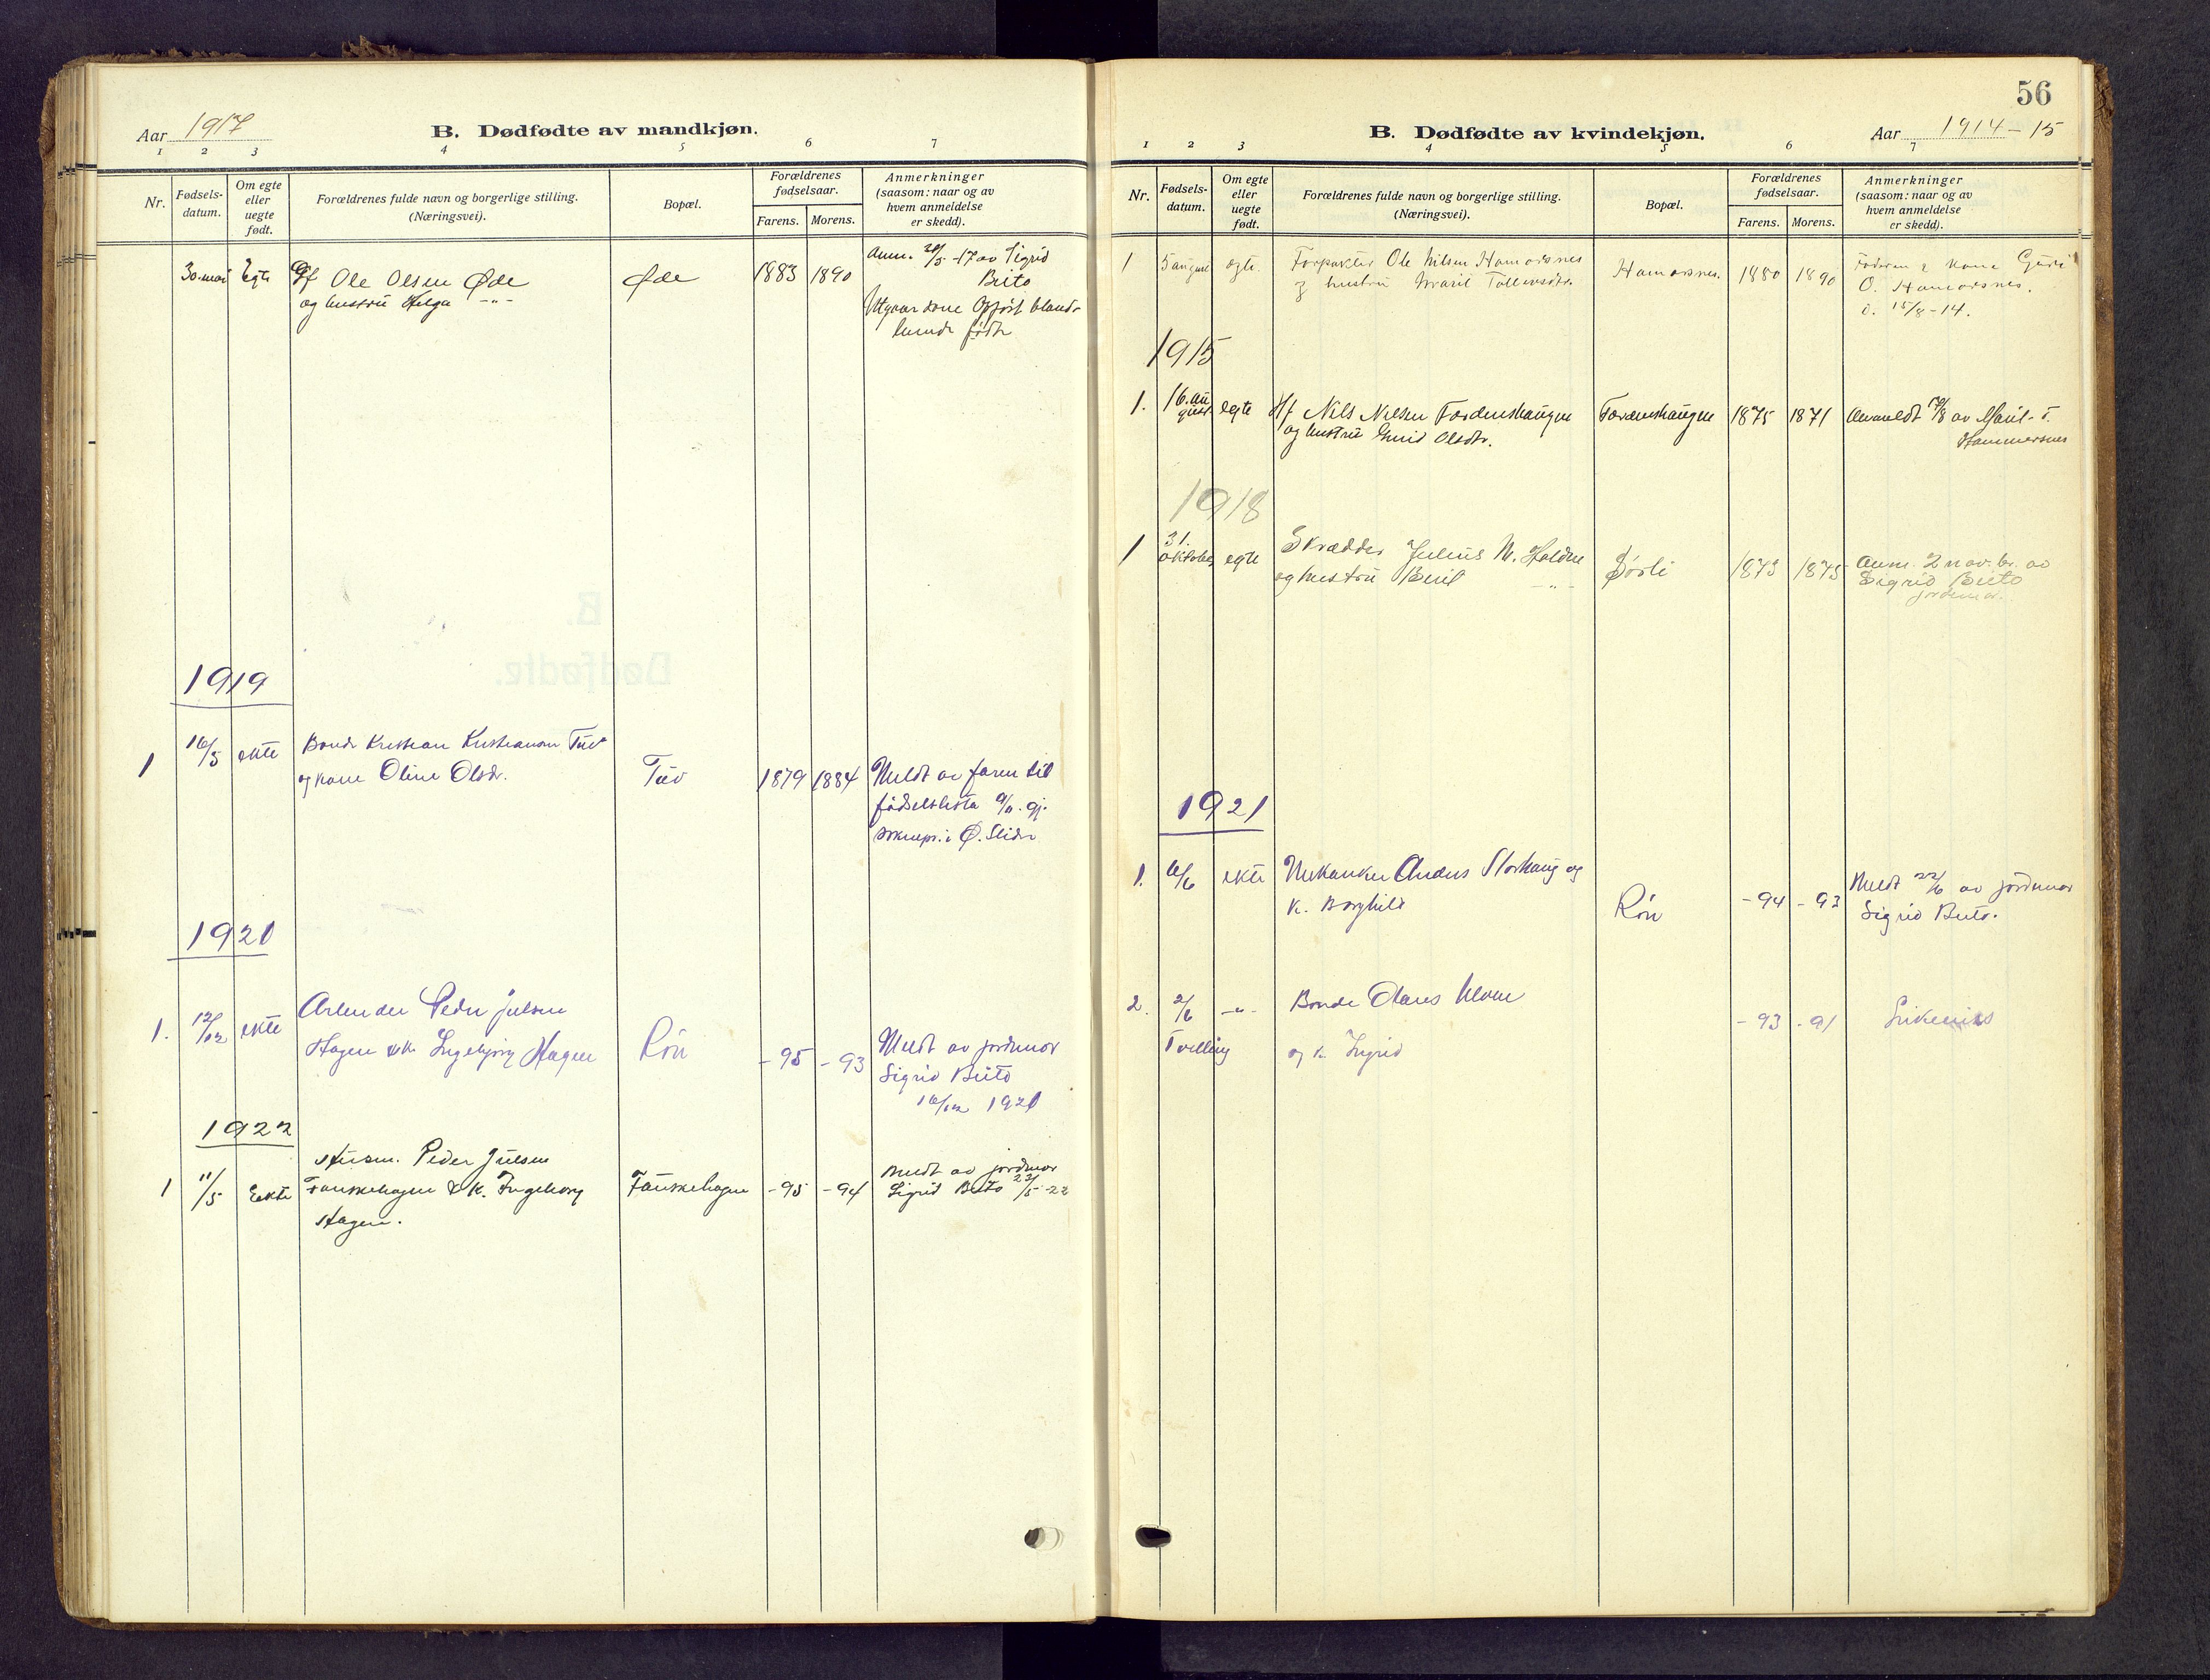 Aar 1917
B. Dødfødte av mandkjøn.
1 2 3 4 5 6 7
Nr.
Fødsels-
datum.
Om egte
eller
uegte
født.
Forældrenes fulde navn og borgerlige stilling.
(Næringsvei).
Bopæl.
Forældrenes
fødselsaar.
Farens. Morens.
Anmerkninger
(saasom: naar og av
hvem anmeldelse
er skedd).
30. mai Egte Gf Ole Olsen Øde Øde 1883 1890
og hustru Helga -"-
Anm. /5 -17 av Sigrid
Beito
Utgaar opført blandt
født
1919
1 16/5 ekte Bonde Kristian Kristiansen Tuv
og kone Oline Olsdr. Tuv 1879 1884
Meldt av faren til
fødselslista
i Ø. Slidre
1920
1. 12/12 ekte Arbeider Peder Julsen
Hagen & k. Ingebjørg Hagen Røn -95 -93
Meldt av jordmor
Sigrid Beito
16/12 1920
1922
1 11/5 Ekte Husm. Peder Julsen
Fauskehagen & k. Ingeborg
Hagen.
Fauskehagen -95 -94
Meldt av jordmor
Sigrid Beito 22/5-22
56
B. Dødfødte av kvindekjøn.
Aar 1914-15
1 2 3 4 5 6 7
Nr.
Fødsels-
datum.
Om egte
eller
uegte
født.
Forældrenes fulde navn og borgerlige stilling.
(Næringsvei).
Bopæl.
Forældrenes
fødselsaar.
Farens. Morens.
Anmerkninger
(saasom: naar og av
hvem anmeldelse
er skedd).
1 5 august egte. Forpakter Ole Nilsen Hamarsnes
og hustru Marit Tollevsdtr. Hamarsnes. 1880 1890
kone Guri
O. Hamarsnes.
d. 15/8-14.
1915
1. 16. au
gust egte Gf Nils Nilsen Fordenshaugen
og hustru Gurid Olsdtr. Fordenshaugen 1875 1871
Anmeldt /8 av Marit T.
Hammersnes
1918
1 31.
oktober egte Skrædder Julius M. Holdne
og hustru Beret -"- Sørli 1873 1875
Anm. 2 novbr. av
Sigrid Beito
jordemor.
1921
1. 6/6 ekte Mekaniker Anders Storhaug og
k. Borghild Røn -94 -93
Meldt 22/6 av jordmor
Sigrid Beito.
2. 2/6 -"- Bonde Olaus
og k. Ingrid
Tvilling
-93 -91